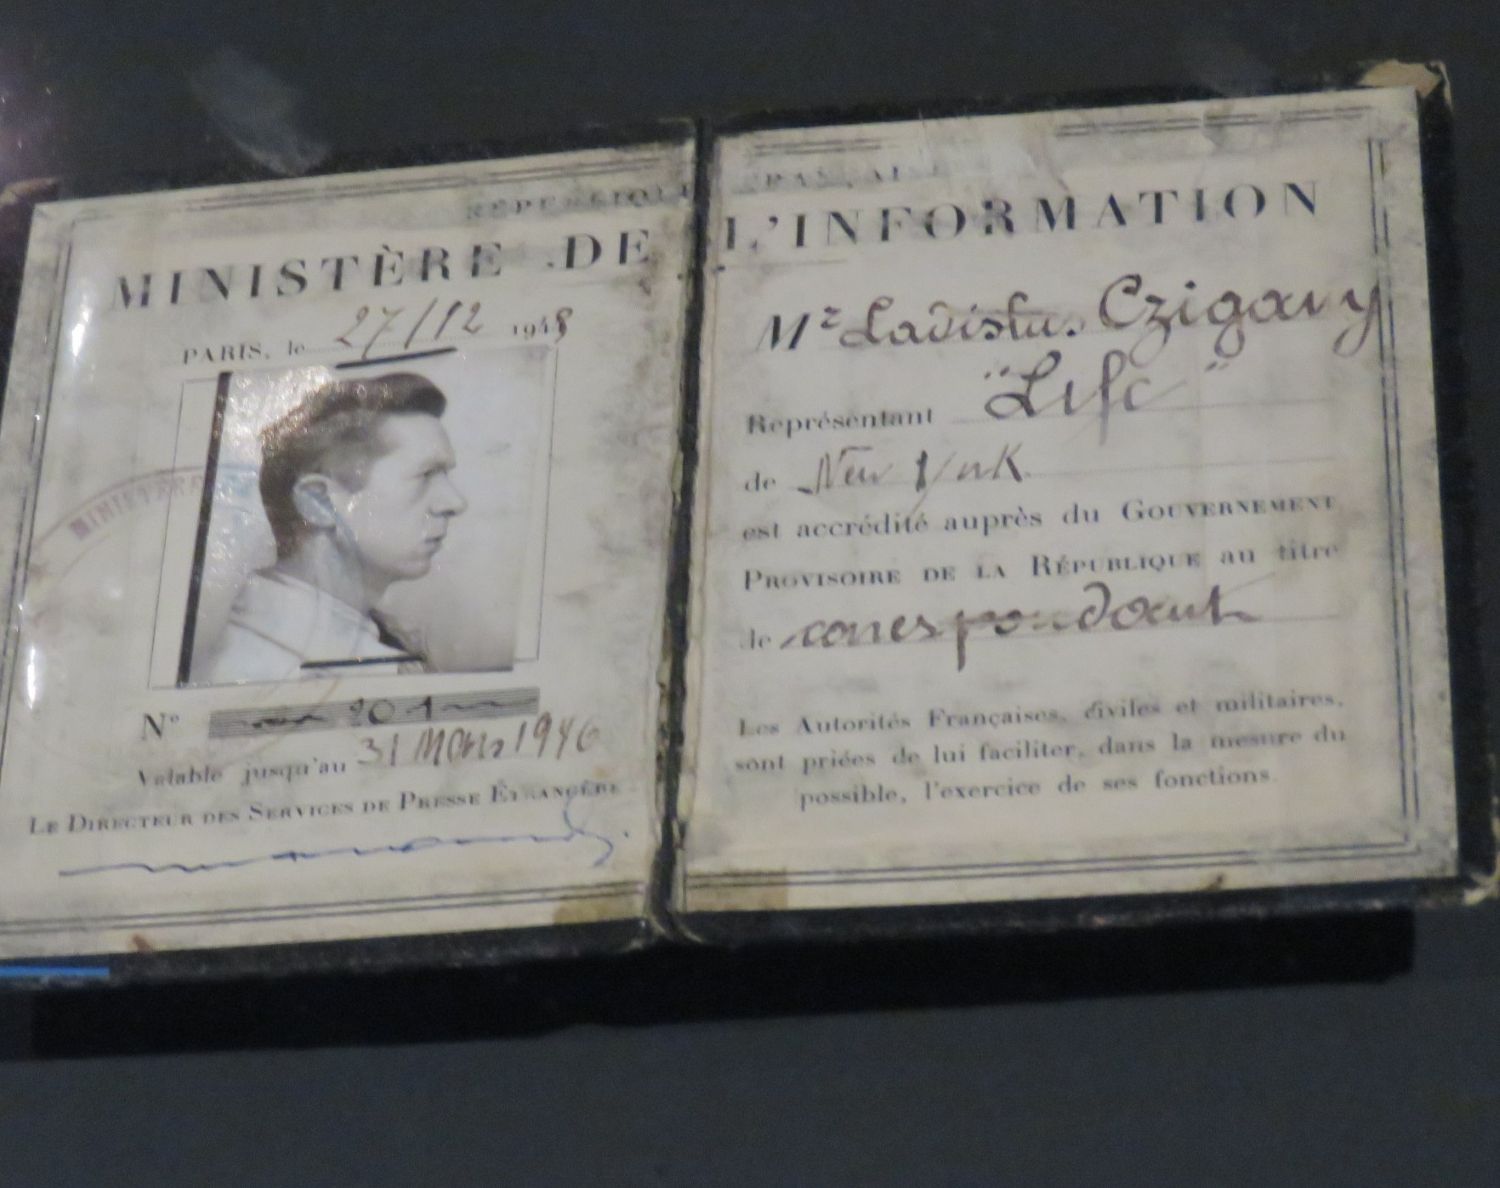 RÉPUBLIQUE FRANÇAISE
MINISTÈRE DE L'INFORMATION
PARIS, le 27/12 194
MINISTÈRE
N° 201
Valable jusqu'au 31 Mars 1946
LE DIRECTEUR DES SERVICES DE PRESSE ÉTRANGÈRE
Mr Ladislas Czigany
Représentant "Life"
de New York
est accrédité auprès du GOUVERNEMENT
PROVISOIRE DE LA RÉPUBLIQUE au titre
de correspondant
Les Autorités Françaises, civiles et militaires,
sont priées de lui faciliter, dans la mesure du
possible, l'exercice de ses fonctions.